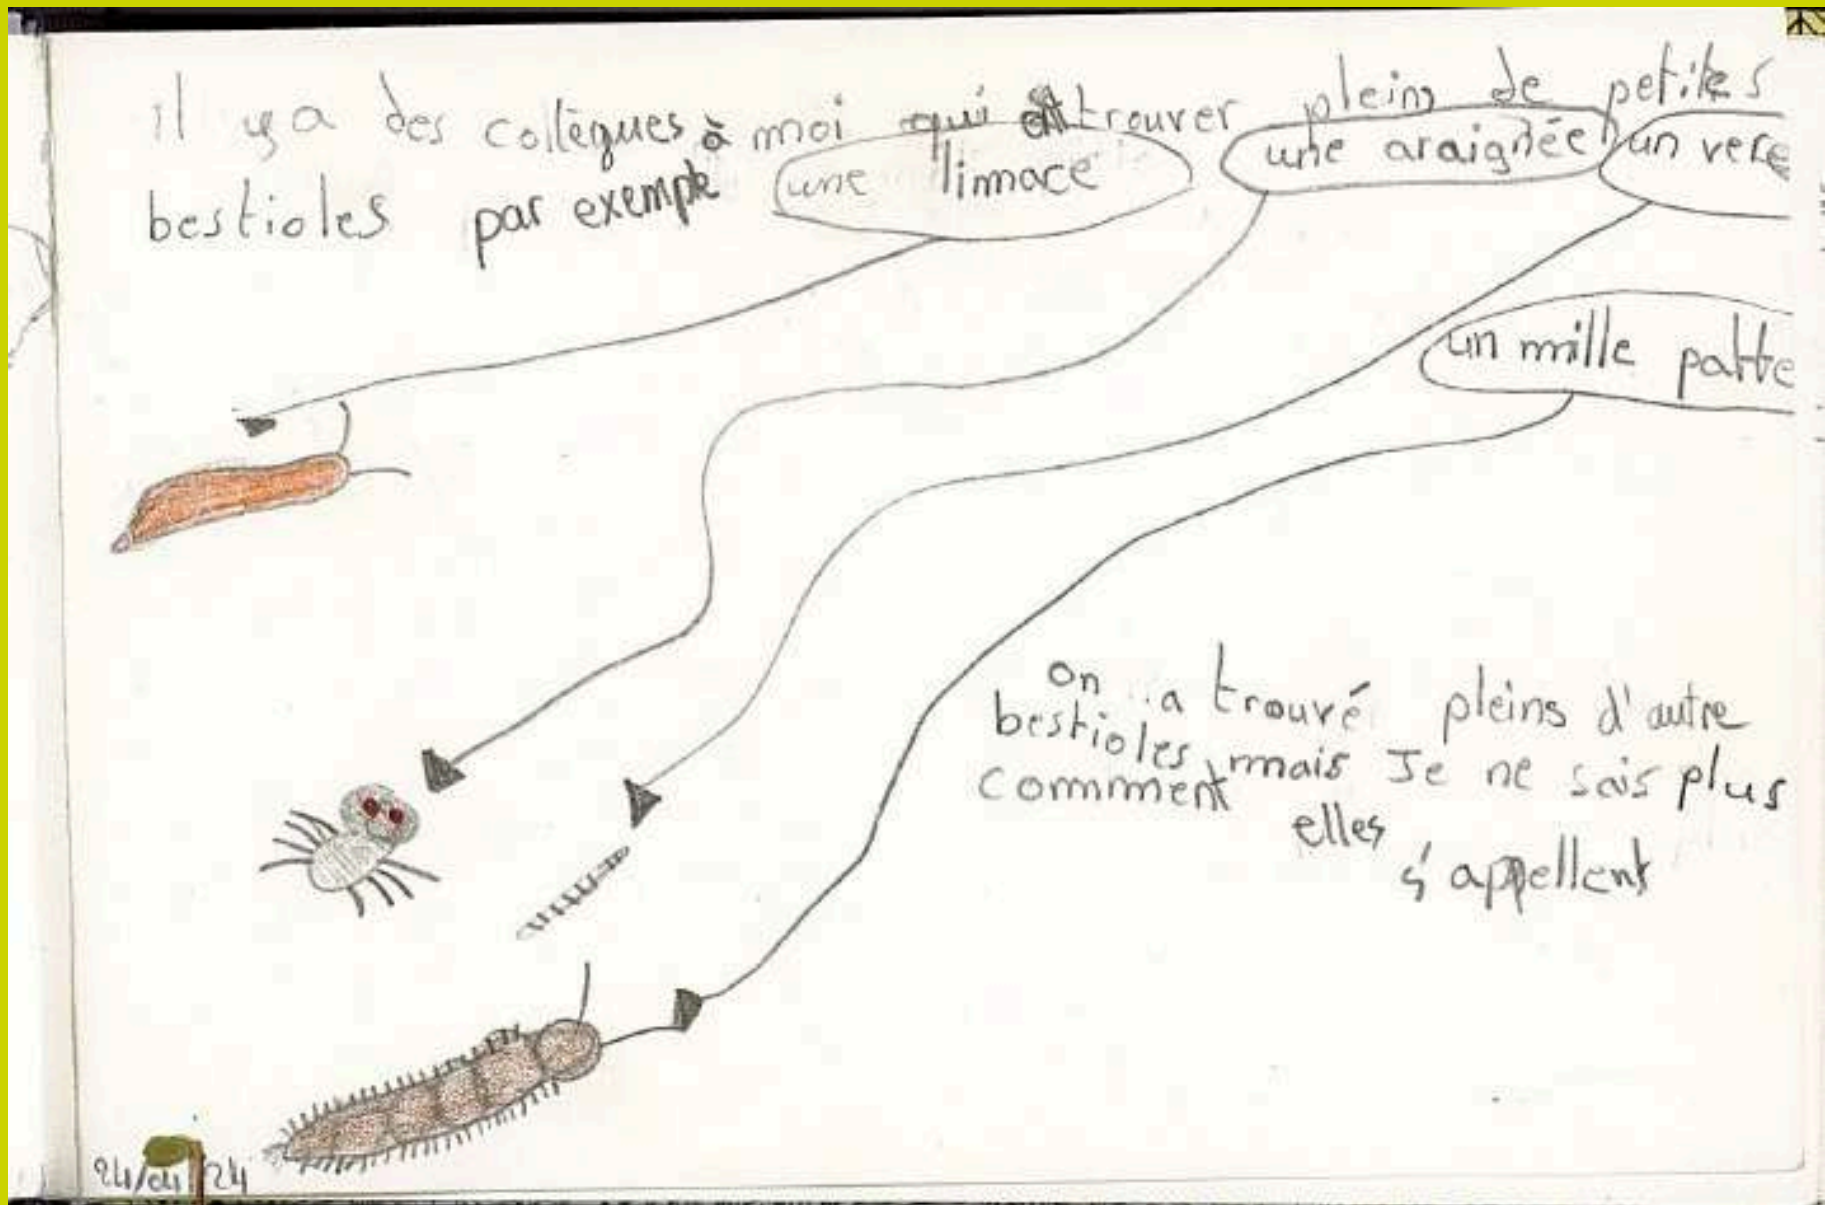 il y a des collègues à moi qui ont trouver plein de petites
bestioles par exemple une limace une araignée un vere
un mille patte
on a trouvé pleins d'autre
bestioles mais Je ne sais plus
comment elles
s'appellent
24/04/24